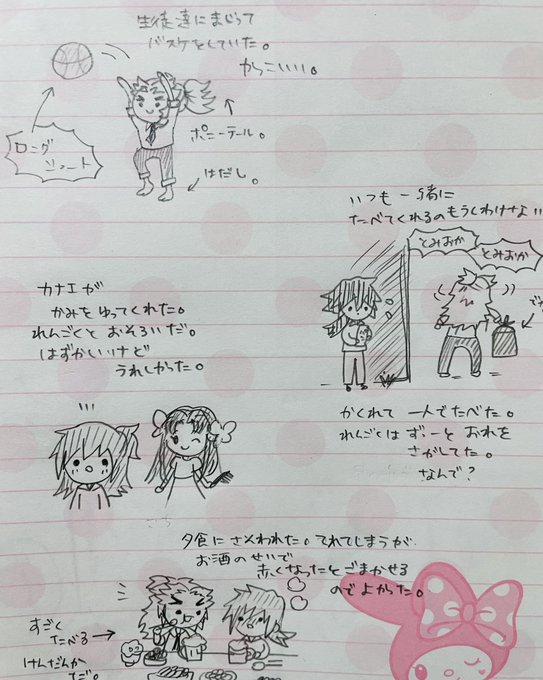 生徒達にまじって
バスケをしていた。
かっこいい。
ロング
シュート
ポニーテール。
はだし。
いつも一緒に
たべてくれるのもうしわけない
とみおか
とみおか
カナエが
かみをゆってくれた。
れんごくとおそろいだ。
はずかしいけど
うれしかった。
かくれて一人でたべた。
れんごくはずぅーとおれを
さがしてた。
なんで?
夕食にさそわれた。てれてしまうが
お酒のせいで
赤くなったとごまかせる
のでよかった。
すごく
たべる
けんだんか
だ。